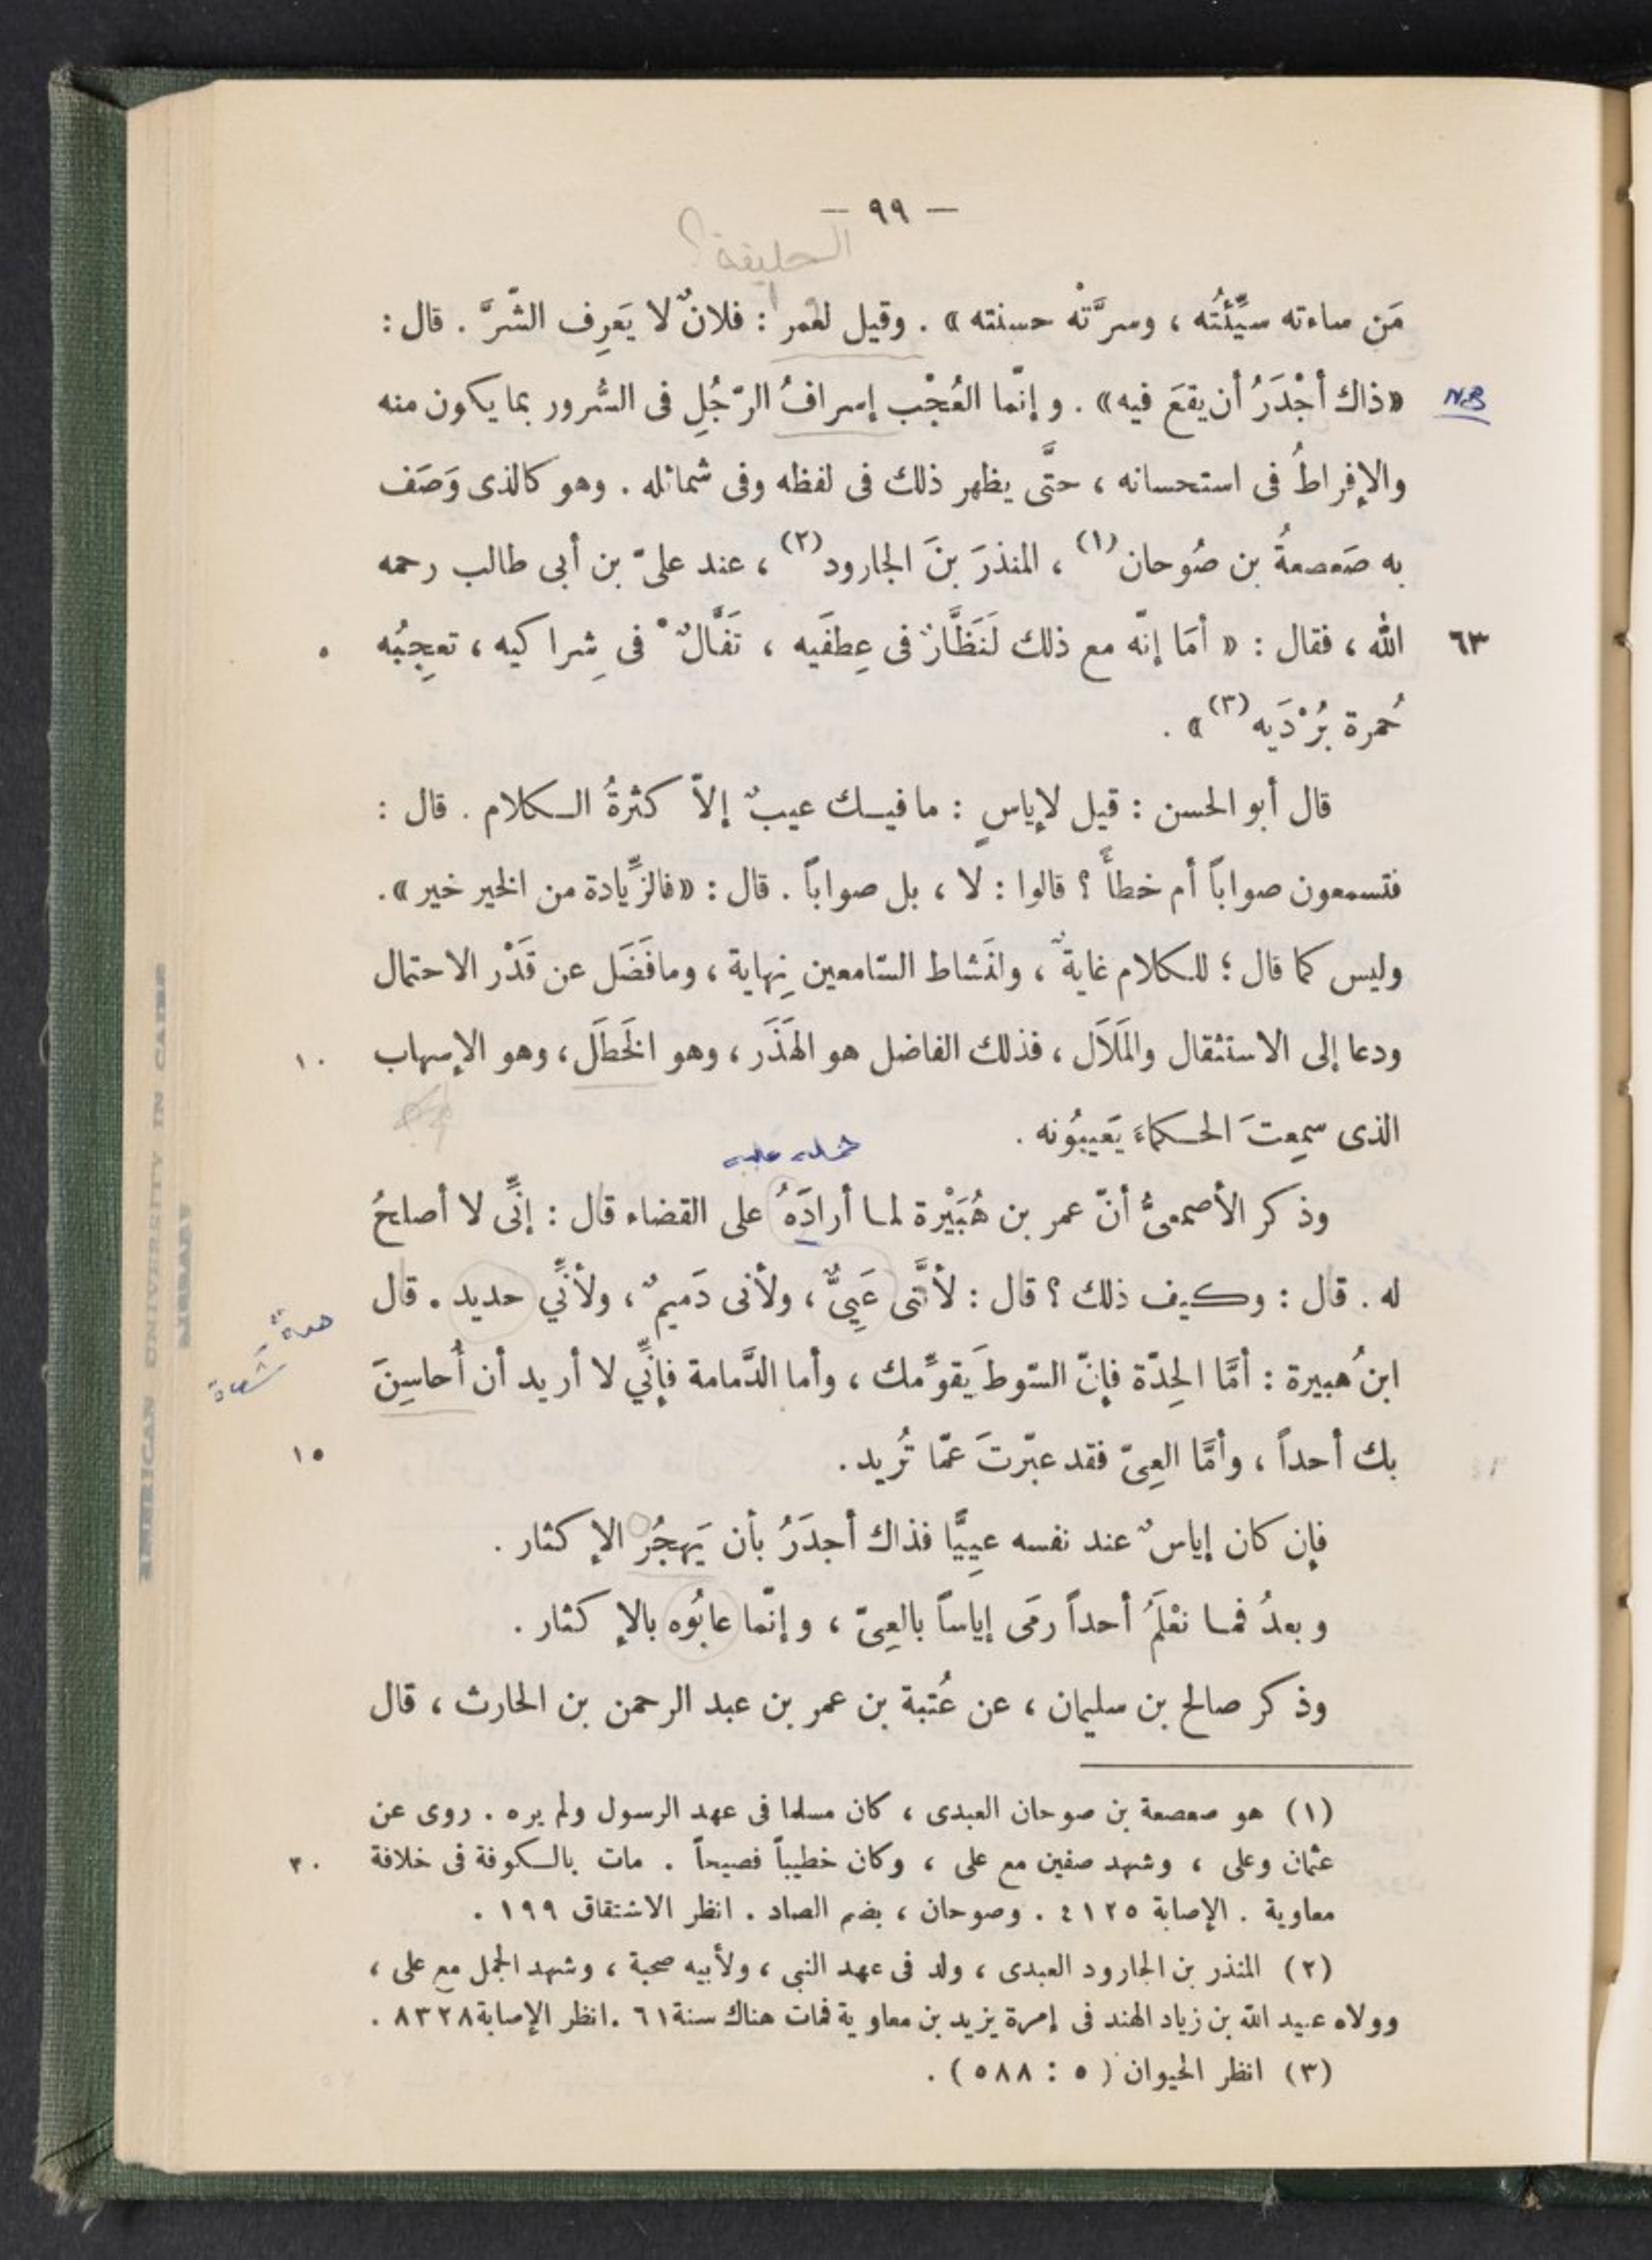 — ٩٩ —
الخليفة؟
مَن ساءته سيِّئتُه ، وسرَّتْه حسنته » . وقيل لعمر : فلانٌ لا يَعرِف الشّرَّ . قال :
N.B
«ذاك أجْدَرُ أن يقعَ فيه» . وإنّما العُجْب إسرافُ الرّجُلِ فى السُّرور بما يكون منه
والإفراطُ فى استحسانه ، حتَّى يظهر ذلك فى لفظه وفى شمائله . وهو كالذى وَصَف
به صَعصعةُ بن صُوحان(١) ، المنذرَ بنَ الجارود(٢) ، عند علىّ بن أبى طالب رحمه
٦٣ الله ، فقال : « أمَا إنّه مع ذلك لَنَظَّارٌ فى عِطفَيه ، تَفَّالٌ فى شِراكيه ، تعجِبُه ٥
حُمرة بُرْدَيه(٣) » .
قال أبو الحسن : قيل لإياسٍ : ما فيك عيبٌ إلاّ كثرةُ الكلام . قال :
فتسمعون صواباً أم خطأً ؟ قالوا : لا ، بل صواباً . قال : «فالزِّيادة من الخير خير» .
وليس كما قال ؛ للكلام غايةٌ ، ولنَشاط السّامعين نِهاية ، وما فَضَل عن قَدْر الاحتمال
ودعا إلى الاستثقال والمَلَال ، فذلك الفاضل هو الهَذَر ، وهو الخَطَل ، وهو الإسهاب ١٠
الذى سمِعتَ الحكماءَ يَعيبُونه .
وذكر الأصمعىُّ أنّ عمر بن هُبَيْرة لما أرادَهُ على القضاء قال : إنِّى لا أصلحُ
له . قال : وكيف ذلك ؟ قال : لأنَّى عَيِىٌّ ، ولأنى دَميمٌ ، ولأنِّي حديد . قال
ابنُ هُبيرة : أمَّا الحِدّة فإنّ السّوطَ يقوِّمك ، وأما الدَّمامة فإنِّي لا أريد أن أُحاسِنَ
بك أحداً ، وأمَّا العِىّ فقد عبّرتَ عمّا تُريد . ١٥
فإن كان إياسٌ عند نفسه عيِيًّا فذاك أجدَرُ بأن يَهجُر الإكثار .
وبعدُ فما نعْلَمُ أحداً رمَى إياساً بالعِىّ ، وإنّما عابُوه بالإكثار .
وذكر صالح بن سليمان ، عن عُتبة بن عمر بن عبد الرحمن بن الحارث ، قال
(١) هو صعصعة بن صوحان العبدى ، كان مسلما فى عهد الرسول ولم يره . روى عن
عثمان وعلى ، وشهد صفين مع على ، وكان خطيباً فصيحاً . مات بالكوفة فى خلافة ٢٠
معاوية . الإصابة ٤١٢٥ . وصوحان ، بضم الصاد . انظر الاشتقاق ١٩٩ .
(٢) المنذر بن الجارود العبدى ، ولد فى عهد النبى ، ولأبيه صحبة ، وشهد الجمل مع على ،
وولاه عبيد الله بن زياد الهند فى إمرة يزيد بن معاوية فمات هناك سنة ٦١ . انظر الإصابة ٨٣٢٨ .
(٣) انظر الحيوان ( ٥ : ٥٨٨ ) .
AMERICAN UNIVERSITY IN CAIRO
LIBRARY